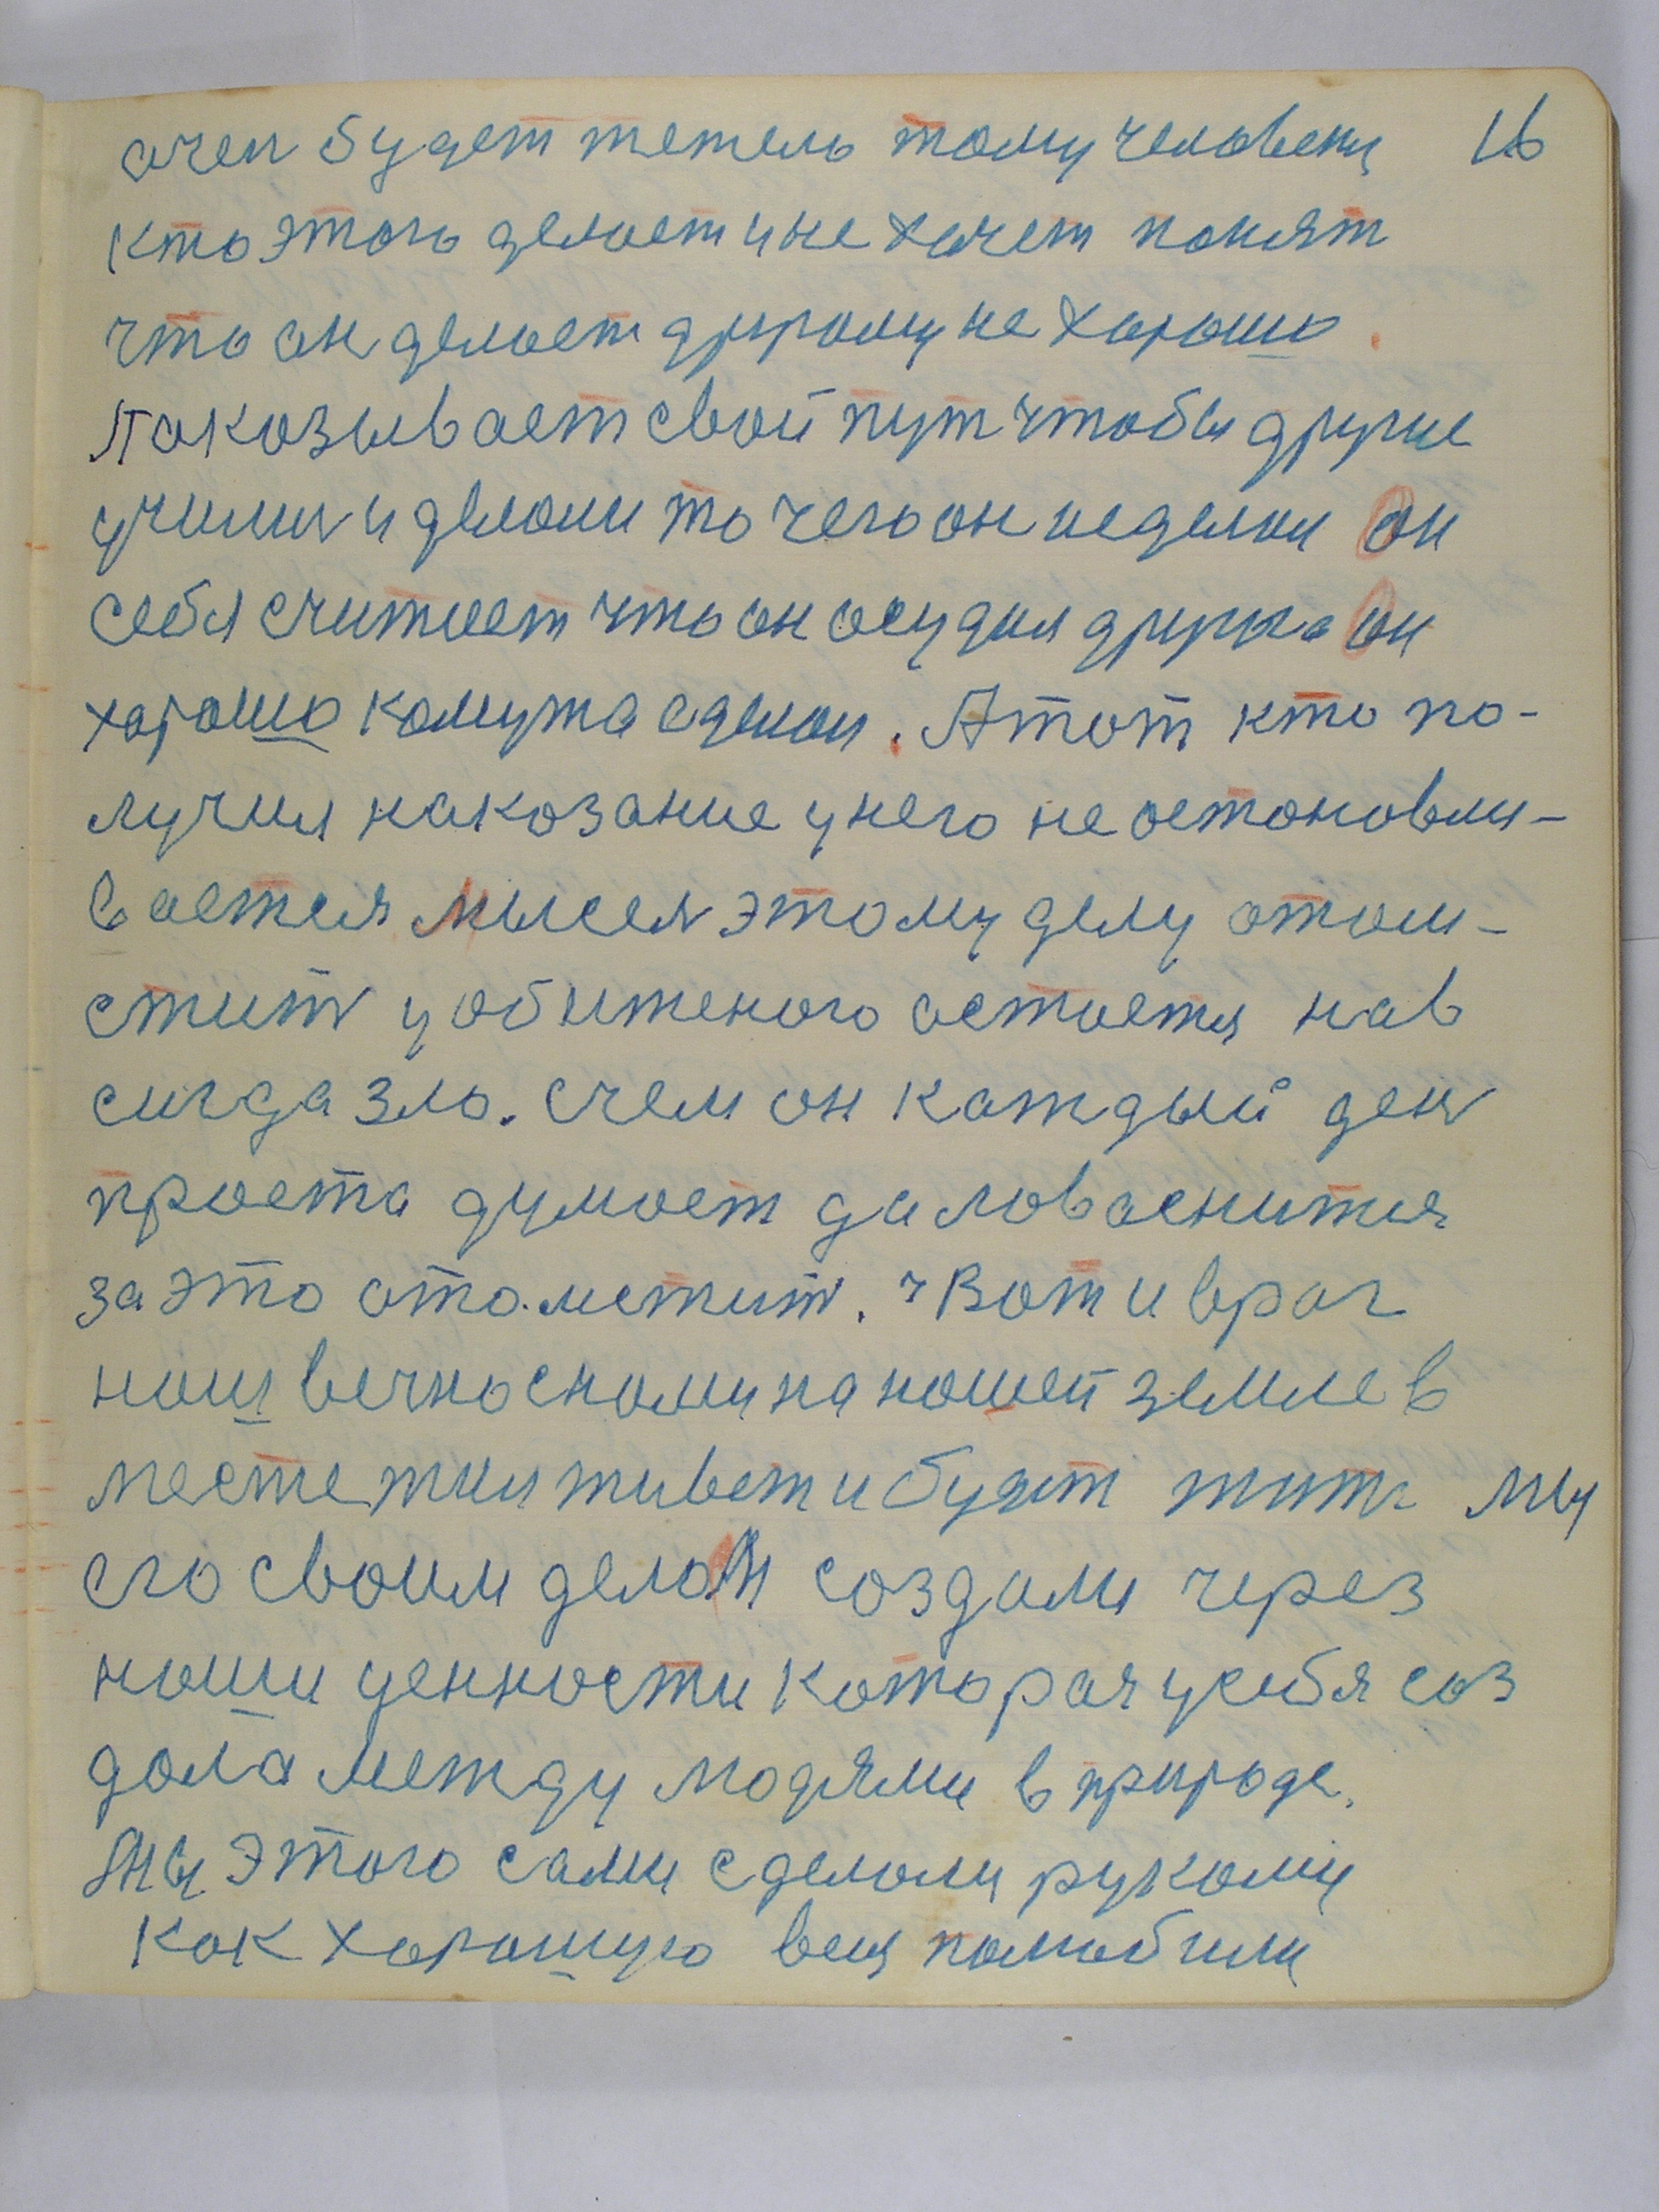 очен будет тежело тому человеку 16
кто этого делает и не хочет понят
что он делает другому не хорошо.
Показывает свой пут чтобы другие
учили и делали то чего он не делал он
себя считает что он осудил друга он
хорошо комута сделал. А тот кто по-
лучил наказание у него не остоновли-
вается мысел этому делу отом-
стит у обиженого остается нав
сигда зло. С чем он каждый ден
проста думает да
за это отомстит. Вот и враг
наш вечно снами на нашей земле в
месте жил живет и будет жить мы
его своим делом создали через
наши ценности которая у себя соз
дала между людями в природе.
Мы этого сами сделали руками
как хорошую вещ полюбили